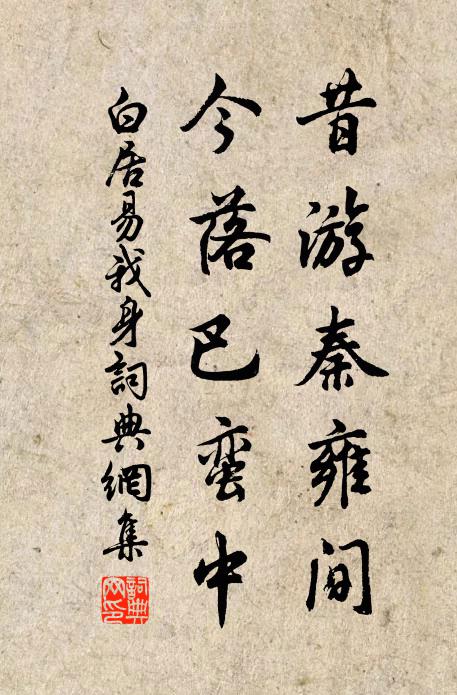 昔游秦雍间
今落巴蛮中
白居易我身詞典網集
詞典網印